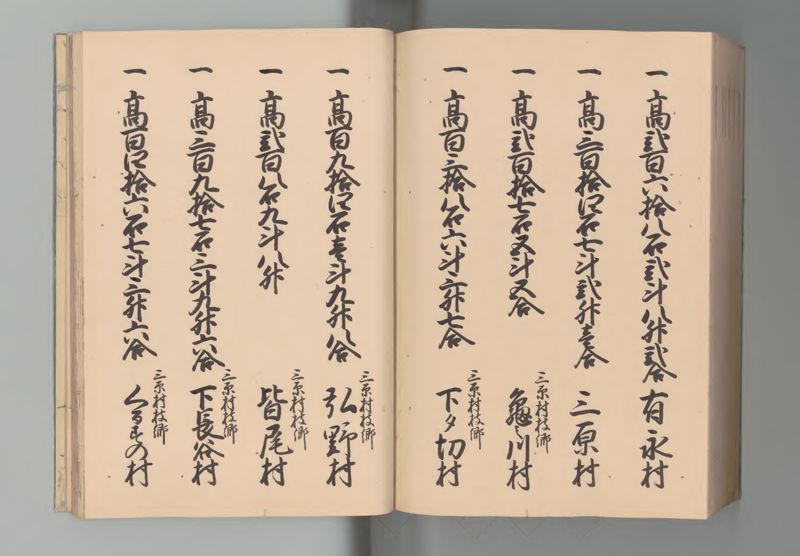 一 高弐百六拾八石弐斗八升弐合 有永村
一 高三百拾四石七斗弐升壱合 三原村
一 高弐百拾七石五斗五合 三原村枝郷 亀川村
一 高百三拾八石六斗三升七合 三原村枝郷 下夕切村
一 高百九拾四石壱斗九升八合 三原村枝郷 弘野村
一 高弐百八石九斗八升 三原村枝郷 皆尾村
一 高三百九拾七石三斗九升六合 三原村枝郷 下長谷村
一 高百四拾六石七斗三升六合 三原村枝郷 村